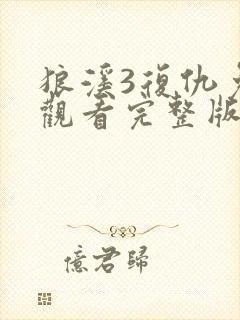 狼溪3復仇
觀看完整版
億君歸